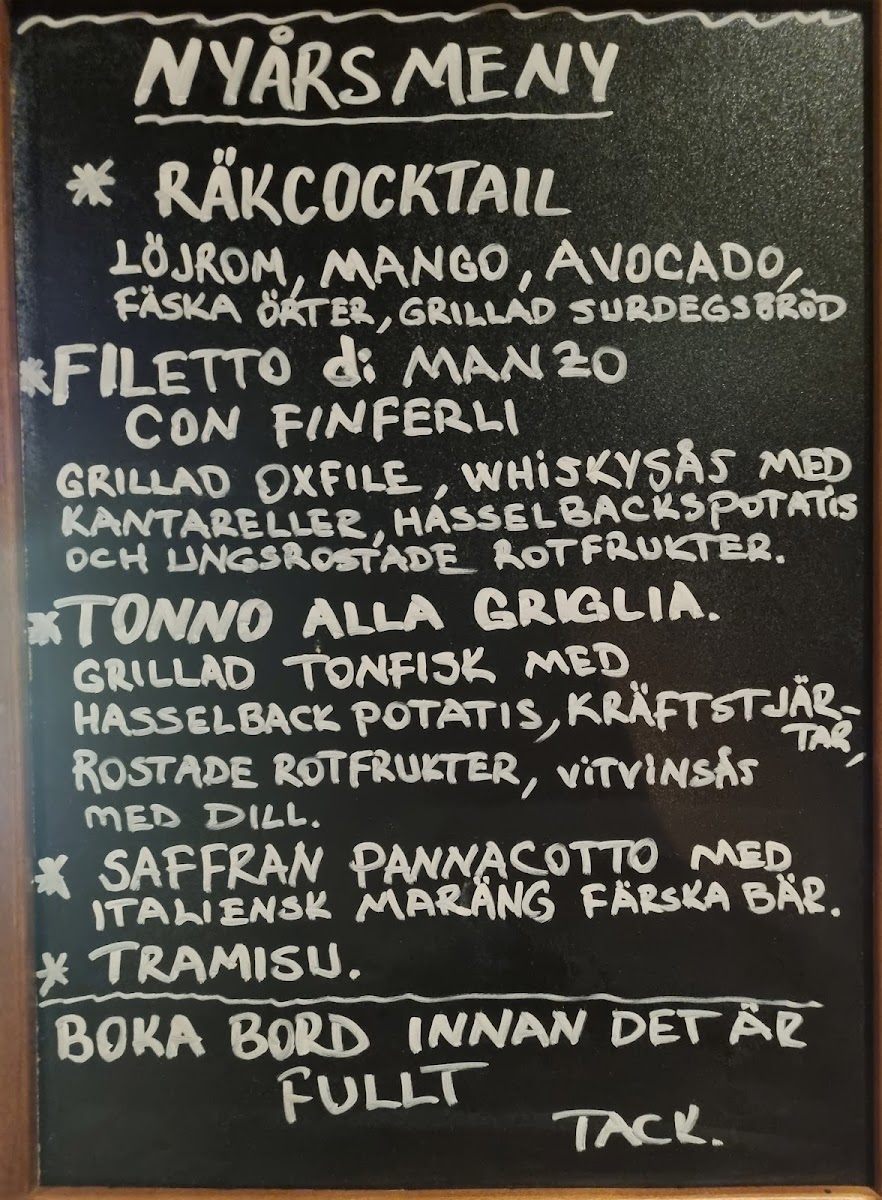 NYÅRSMENY
* RÄKCOCKTAIL
LÖJROM, MANGO, AVOCADO,
FÄSKA ÖRTER, GRILLAD SURDEGSBRÖD
*FILETTO di MANZO
CON FINFERLI
GRILLAD OXFILE, WHISKYSÅS MED
KANTARELLER, HASSELBACKSPOTATIS
OCH UNGSROSTADE ROTFRUKTER.
*TONNO ALLA GRIGLIA.
GRILLAD TONFISK MED
HASSELBACK POTATIS, KRÄFTSTJÄR-
TAR,
ROSTADE ROTFRUKTER, VITVINSÅS
MED DILL.
* SAFFRAN PANNACOTTO MED
ITALIENSK MARÄNG FÄRSKA BÄR.
* TRAMISU.
BOKA BORD INNAN DET ÄR
FULLT
TACK.